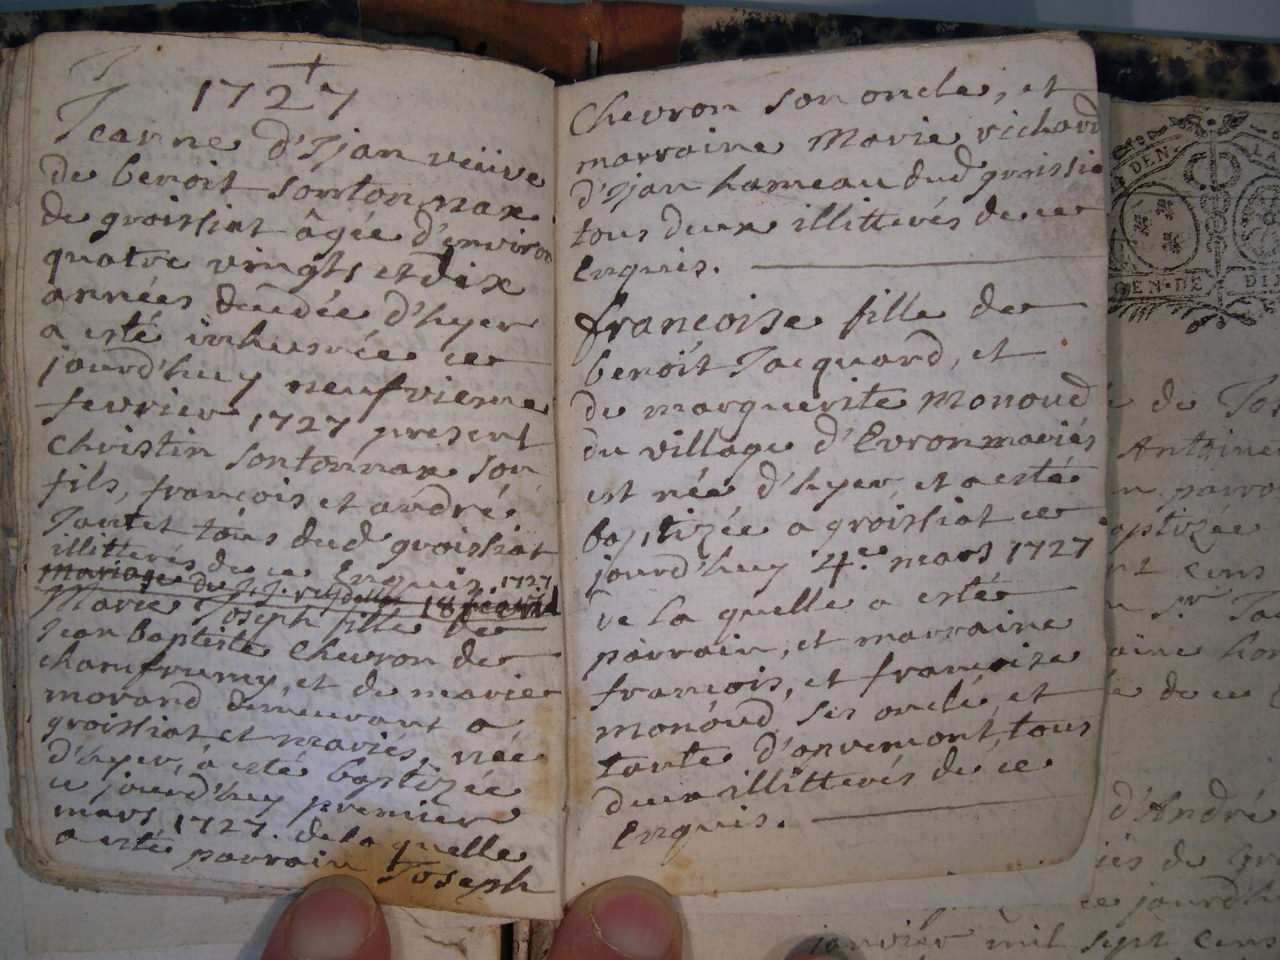 1727
Jeanne d'Ijan veüve
de benoit Sonton nax
de groissiat âgée d'environ
quatre vingts et dix
années décédée d'hyer
a esté inhumée ce
jourd'huy neufvieme
fevrier 1727 present
Christin Sontonnax son
fils, françois et andré
tous dud groissiat
illitterés de ce Enquis. 1727
Mariage du 18
Marie Joseph fille de
Jean baptiste Chevron de
chamfromy, et de marie
morand demeurant a
groissiat et mariés, née
d'hyer, a esté baptizée
ce jourd'huy premier
mars 1727. de la quelle
a esté parrain Joseph
Chevron son oncle, et
marraine Marie richard
d'Ijan hameau dud groissia
tous deux illitterés de ce
Enquis.
françoise fille de
benoit Jacquard, et
de marguerite monoud
du village d'Evron mariés
est née d'hyer, et a esté
baptizée a groissiat ce
jourd'huy 4e. mars 1727
De la quelle a esté
parrain, et marraine
françois, et françoise
monoud, ses oncle, et
tante d'apremont, tous
deux illitterés de ce
Enquis.
DEN
LA
GEN·DE
DI
de
Antoine
parro
aptizée
cens
Sr
aine
de ce
d'André
de
ce jourd'h
janvier mil sept cens